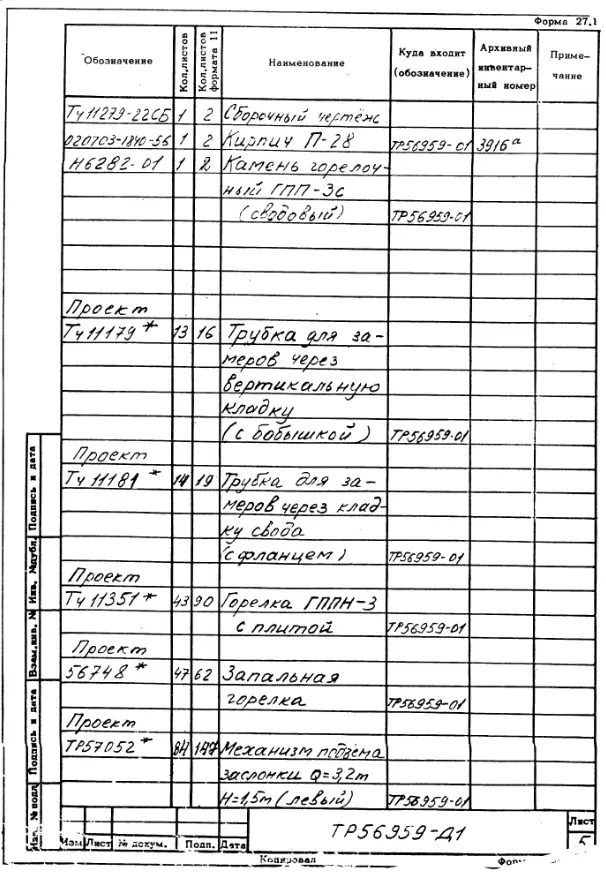 Форма 27.1
Обозначение Кол.листов Кол.листов формата 11 Наименование Куда входит (обозначение) Архивный инвентарный номер Приме-чание
Тч11279-22СБ 1 2 Сборочный чертеж
020703-1840-56 1 2 Кирпич П-28 ТР56959-01 3916а
Н6282-01 1 2 Камень горелоч-
ный ГПП-3с
(сводовый) ТР56959-01
Проект
Тч11179* 13 16 Трубка для за-
меров через
вертикальную
кладку
(с бобышкой) ТР56959-01
Проект
Тч11181* 14 19 Трубка для за-
меров через клад-
ку свода
(с фланцем) ТР56959-01
Проект
Тч11351* 43 90 Горелка ГППН-3
с плитой ТР56959-01
Проект
56748* 47 62 Запальная
горелка ТР56959-01
Проект
ТР57052* 84 147 Механизм подъема
заслонки Q=3,2т
Н=1,5т (левый) ТР56959-01
Инв. № подл. Подпись и дата Взам.инв. № Инв. №дубл. Подпись и дата
Изм Лист № докум. Подп. Дата
ТР56959-Д1
Лист
5
Копировал